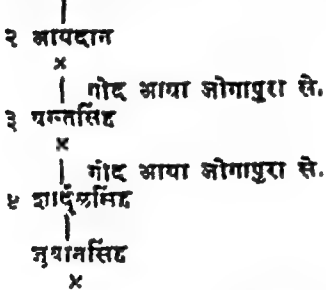 २ आयदान
×
गोद आया जोगापुरा से.
३ वख्तसिंह
×
गोद आया जोगापुरा से.
४ शार्दुलसिंह
जुवानसिंह
×